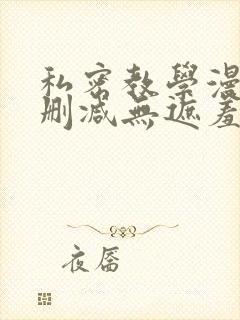 私密教學漫
刪減無遮羞
夜唇